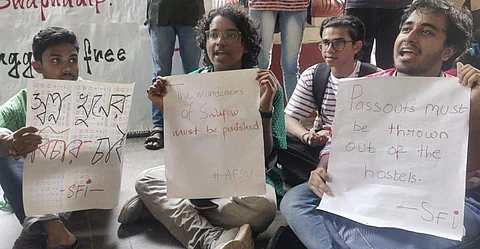 Swapnadip!
free
স্বপ্ন খুনের
বিচার চাই
-SFI-
The murderers
of Swapno
must be punished
#-AFSU
Passouts must
be thrown
out of the
hostels.
-SFI